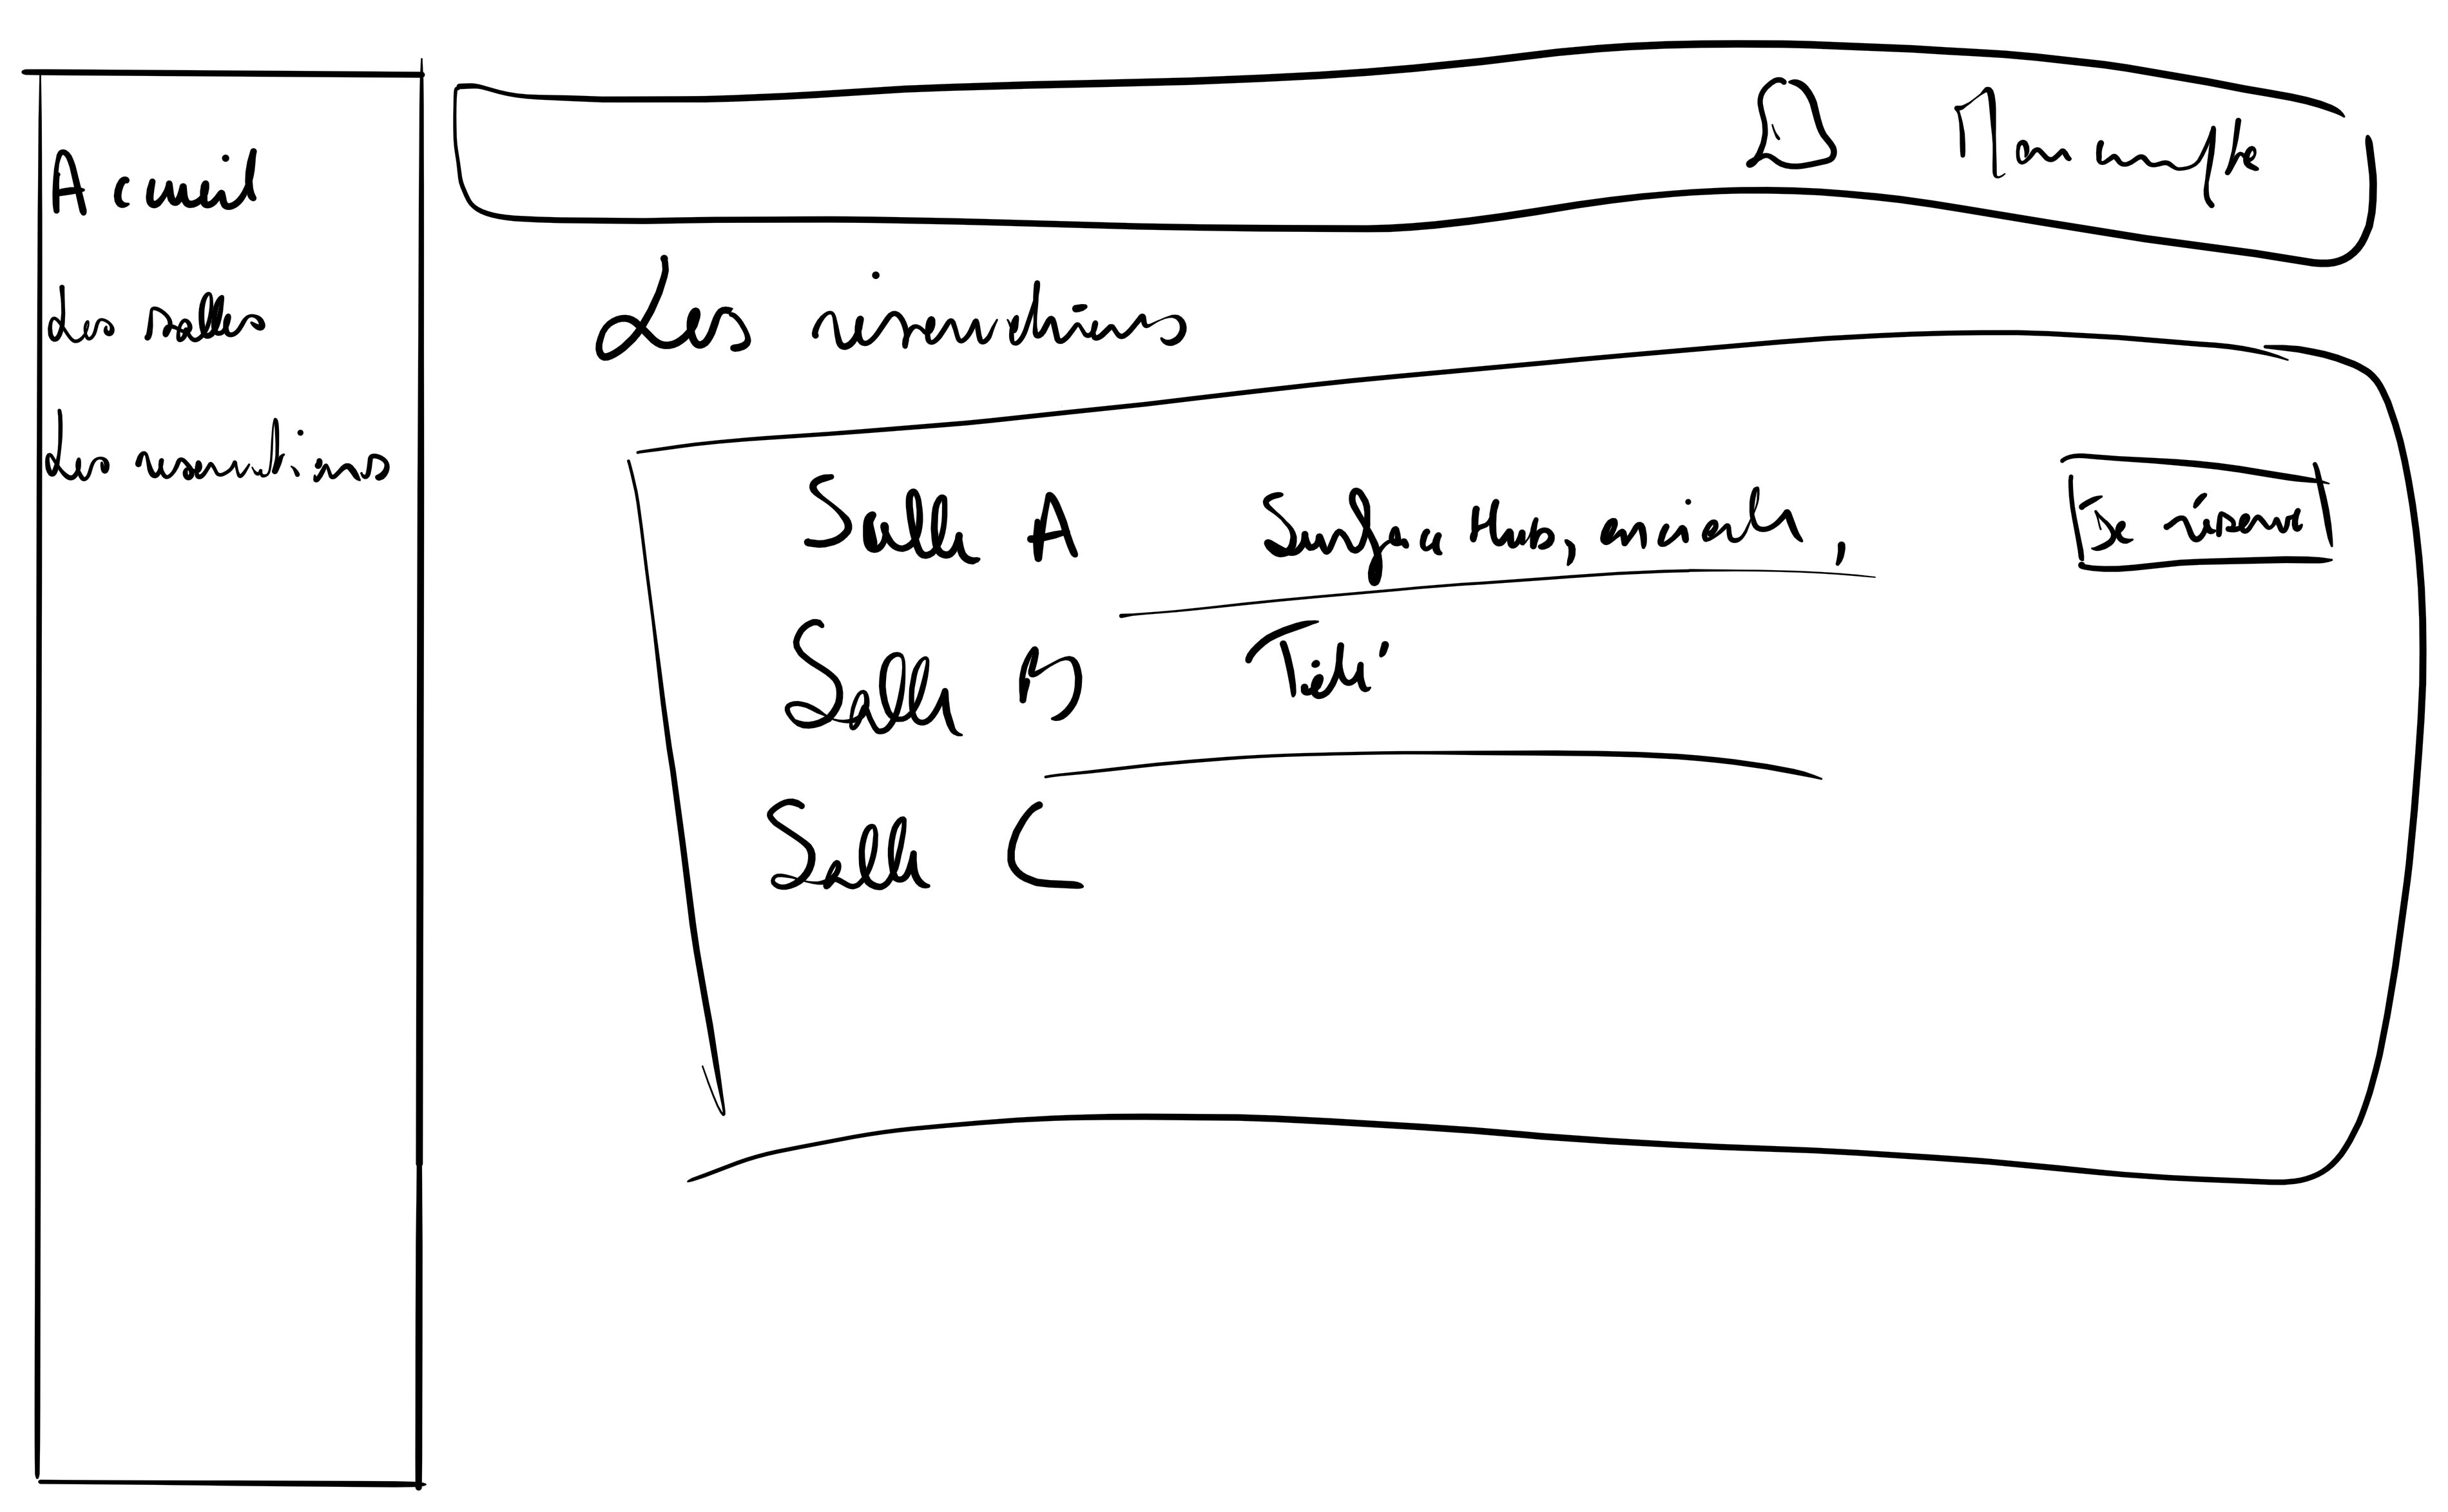 Mon compte
Accueil
Les salles
Les réservations
Les réservations
Salle A Surface Hub, enceinte, Je réserve
Salle B Télé
Salle C